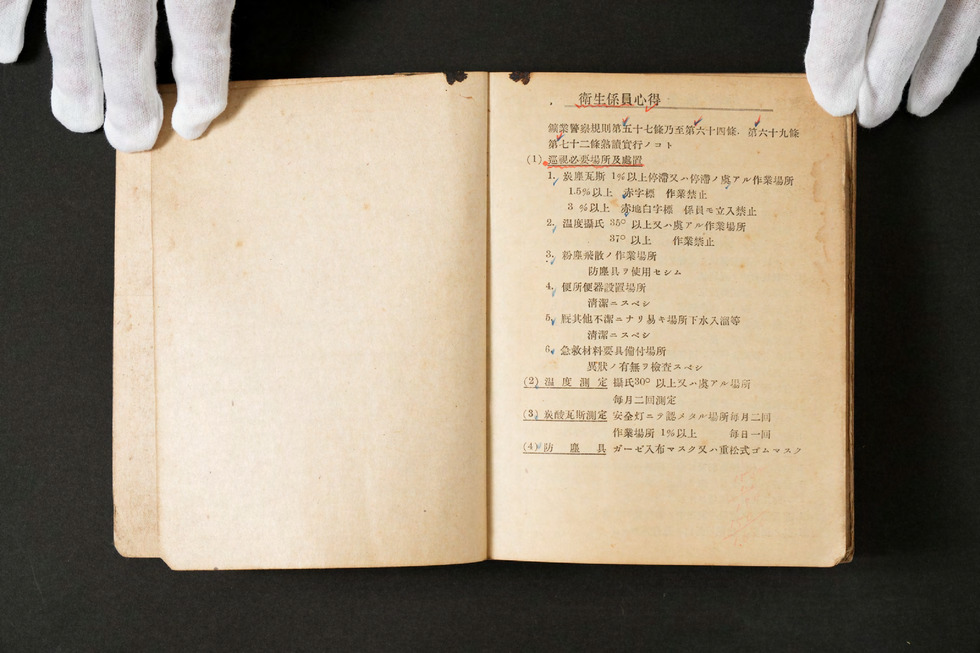 衛生係員心得
鑛業警察規則第五十七條乃至第六十四條、第六十九條
第七十二條熟讀實行ノコト
(1) 巡視必要場所及處置
1. 炭塵瓦斯 1%以上停滯又ハ停滯ノ虞アル作業場所
1.5%以上 赤字標 作業禁止
3 %以上 赤地白字標 係員モ立入禁止
2. 温度攝氏 35° 以上又ハ虞アル作業場所
37° 以上 作業禁止
3. 粉塵飛散ノ作業場所
防塵具ヲ使用セシム
4. 便所便器設置場所
清潔ニスベシ
5. 厩其他不潔ニナリ易キ場所下水入溜等
清潔ニスベシ
6. 急救材料要具備付場所
異狀ノ有無ヲ檢査スベシ
(2) 温度測定 攝氏30° 以上又ハ虞アル場所
毎月二回測定
(3) 炭酸瓦斯測定 安全灯ニテ認メタル場所毎月二回
作業場所 1%以上 毎日一回
(4) 防塵具 ガーゼ入布マスク又ハ重松式ゴムマスク